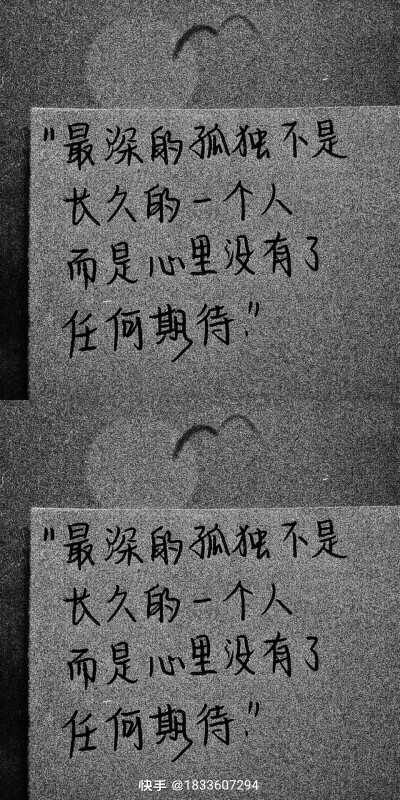 "最深的孤独不是
长久的一个人
而是心里没有了
任何期待."
"最深的孤独不是
长久的一个人
而是心里没有了
任何期待."
快手 @1833607294